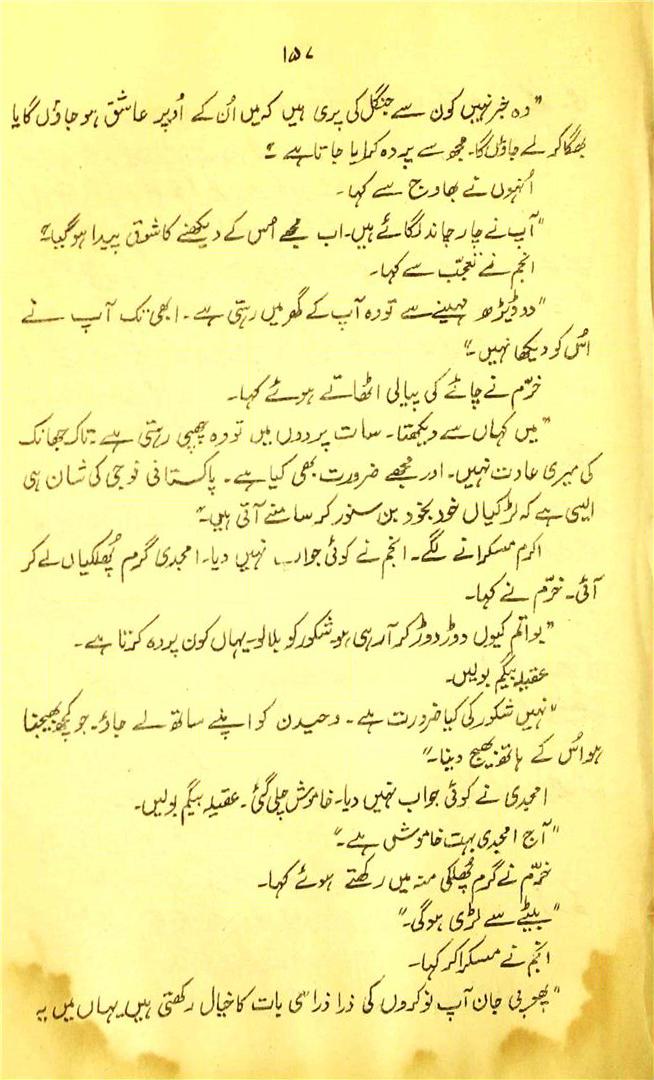 ۱۵۷
"وہ خبر نہیں کون سے جنگل کی پری ہیں کہ میں اُن کے اُوپر عاشق ہو جاؤں گا یا
بھگا کر لے جاؤں گا۔ مجھ سے پردہ کرایا جاتا ہے"
اُنہوں نے بھاوج سے کہا۔
"آپ نے چار چاند لگائے ہیں۔ اب مجھے اُس کے دیکھنے کا شوق پیدا ہو گیا"
انجم نے تعجّب سے کہا۔
"دو ڈیڑھ مہینے سے تو وہ آپ کے گھر میں رہتی ہے۔ ابھی تک آپ نے
اُس کو دیکھا نہیں۔"
خرّم نے چائے کی پیالی اٹھاتے ہوئے کہا۔
"میں کہاں سے دیکھتا۔ سات پردوں میں تو وہ چھپی رہتی ہے۔ تاک جھانک
کی میری عادت نہیں۔ اور مجھے ضرورت بھی کیا ہے۔ پاکستانی فوجی کی شان ہی
ایسی ہے کہ لڑکیاں خود بخود بن سنور کر سامنے آتی ہیں۔"
اکرم مسکرانے لگے۔ انجم نے کوئی جواب نہیں دیا۔ امجدی گرم پُھلکیاں لے کر
آئی۔ خرّم نے کہا۔
"بوا تم کیوں دوڑ دوڑ کر آ رہی ہو۔ شکور کو بلا لو۔ یہاں کون پردہ کرتا ہے۔
عقیلہ بیگم بولیں۔
"نہیں شکور کی کیا ضرورت ہے۔ وحیدن کو اپنے ساتھ لے جاؤ۔ جو کچھ بھیجنا
ہو اُس کے ہاتھ بھیج دینا۔"
امجدی نے کوئی جواب نہیں دیا۔ خاموش چلی گئی۔ عقیلہ بیگم بولیں۔
"آج امجدی بہت خاموش ہے۔"
خرّم نے گرم پُھلکی منہ میں رکھتے ہوئے کہا۔
"بیٹے سے لڑی ہوگی۔"
انجم نے مسکرا کر کہا۔
"پھوپی جان آپ نوکروں کی ذرا ذرا سی بات کا خیال رکھتی ہیں۔ یہاں میں یہ